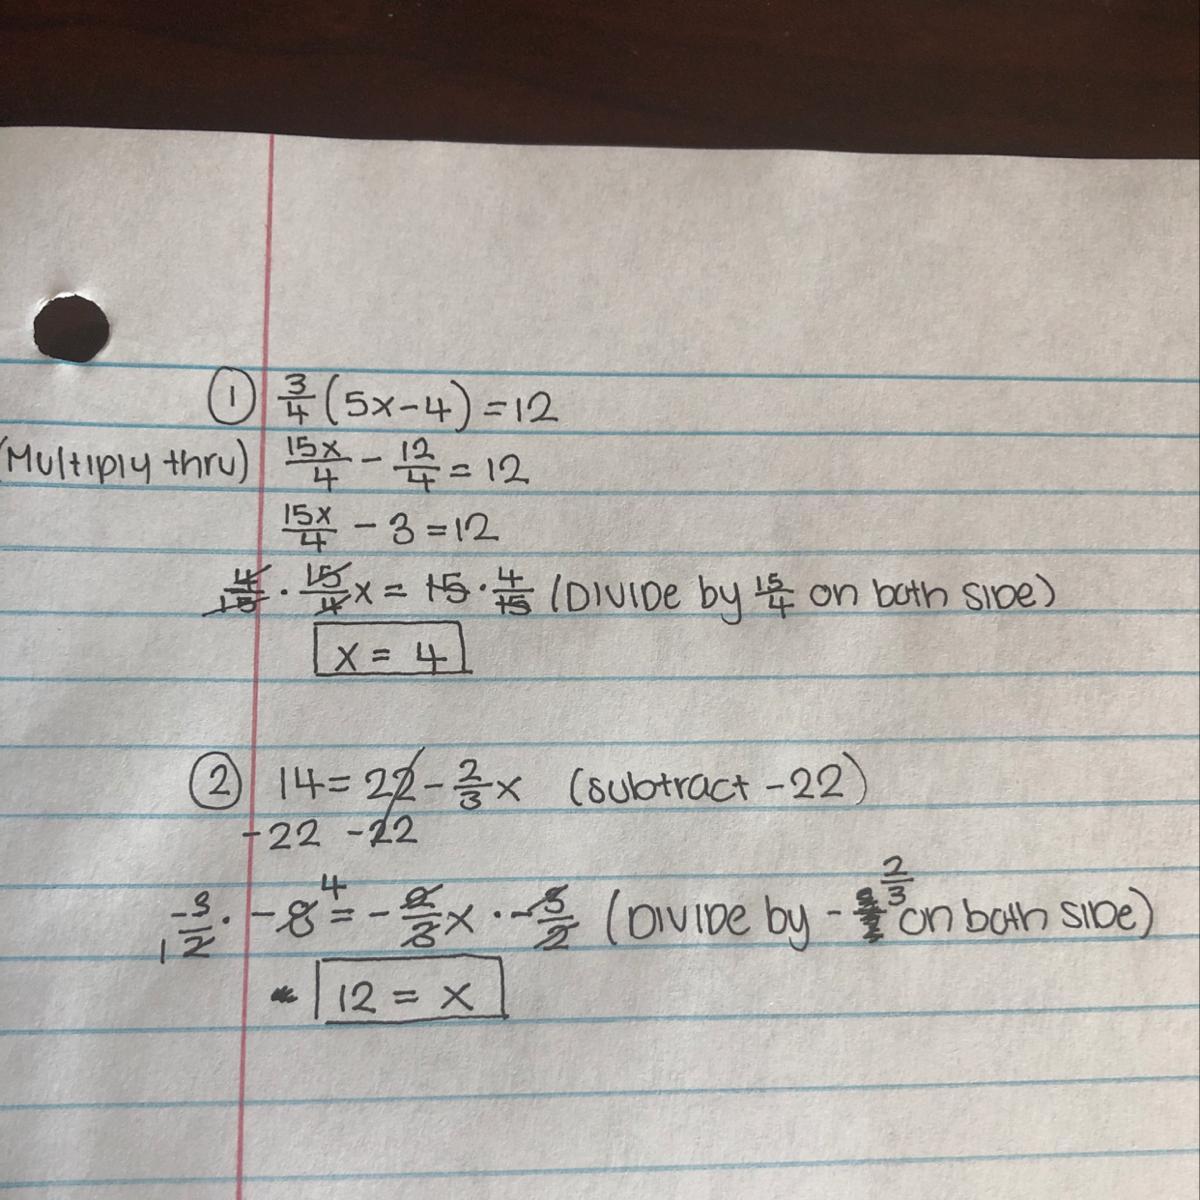 ① 3/4 (5x-4) = 12
(Multiply thru) 15x/4 - 12/4 = 12
15x/4 - 3 = 12
4/15 · 15/4 x = 15 · 4/15 (DIVIDE by 15/4 on both SIDE)
x = 4
② 14 = 22 - 2/3 x (subtract -22)
-22 -22
4
-3/2 · -8 = -2/3 x · -3/2 (DIVIDE by - 2/3 on both SIDE)
1
12 = x